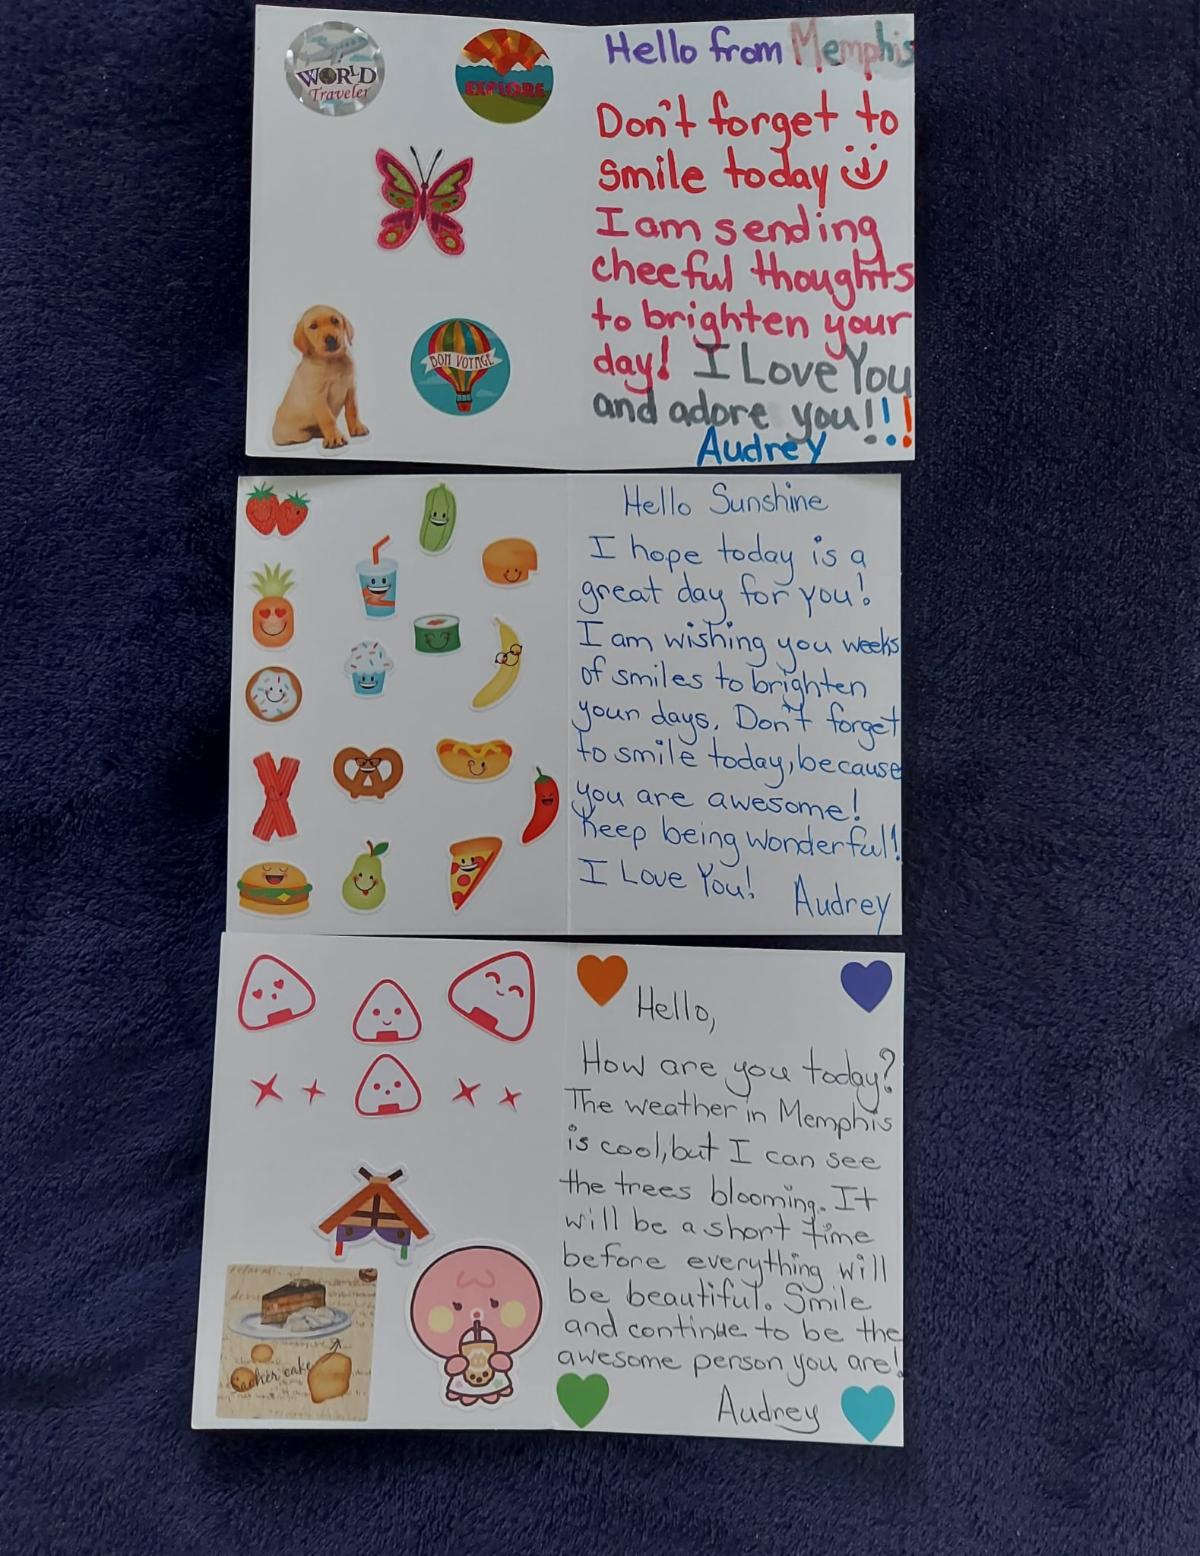 WORLD
Traveler
EXPLORE
BON VOYAGE
Hello from Memphis
Don't forget to
smile today
I am sending
cheeful thoughts
to brighten your
day! I Love You
and adore you!!!
Audrey
Hello Sunshine
I hope today is a
great day for you!
I am wishing you weeks
of smiles to brighten
your days. Don't forget
to smile today, because
you are awesome!
Keep being wonderful!
I Love You!
Audrey
Sacher cake
Hello,
How are you today?
The weather in Memphis
is cool, but I can see
the trees blooming. It
will be a short time
before everything will
be beautiful. Smile
and continue to be the
awesome person you are!
Audrey